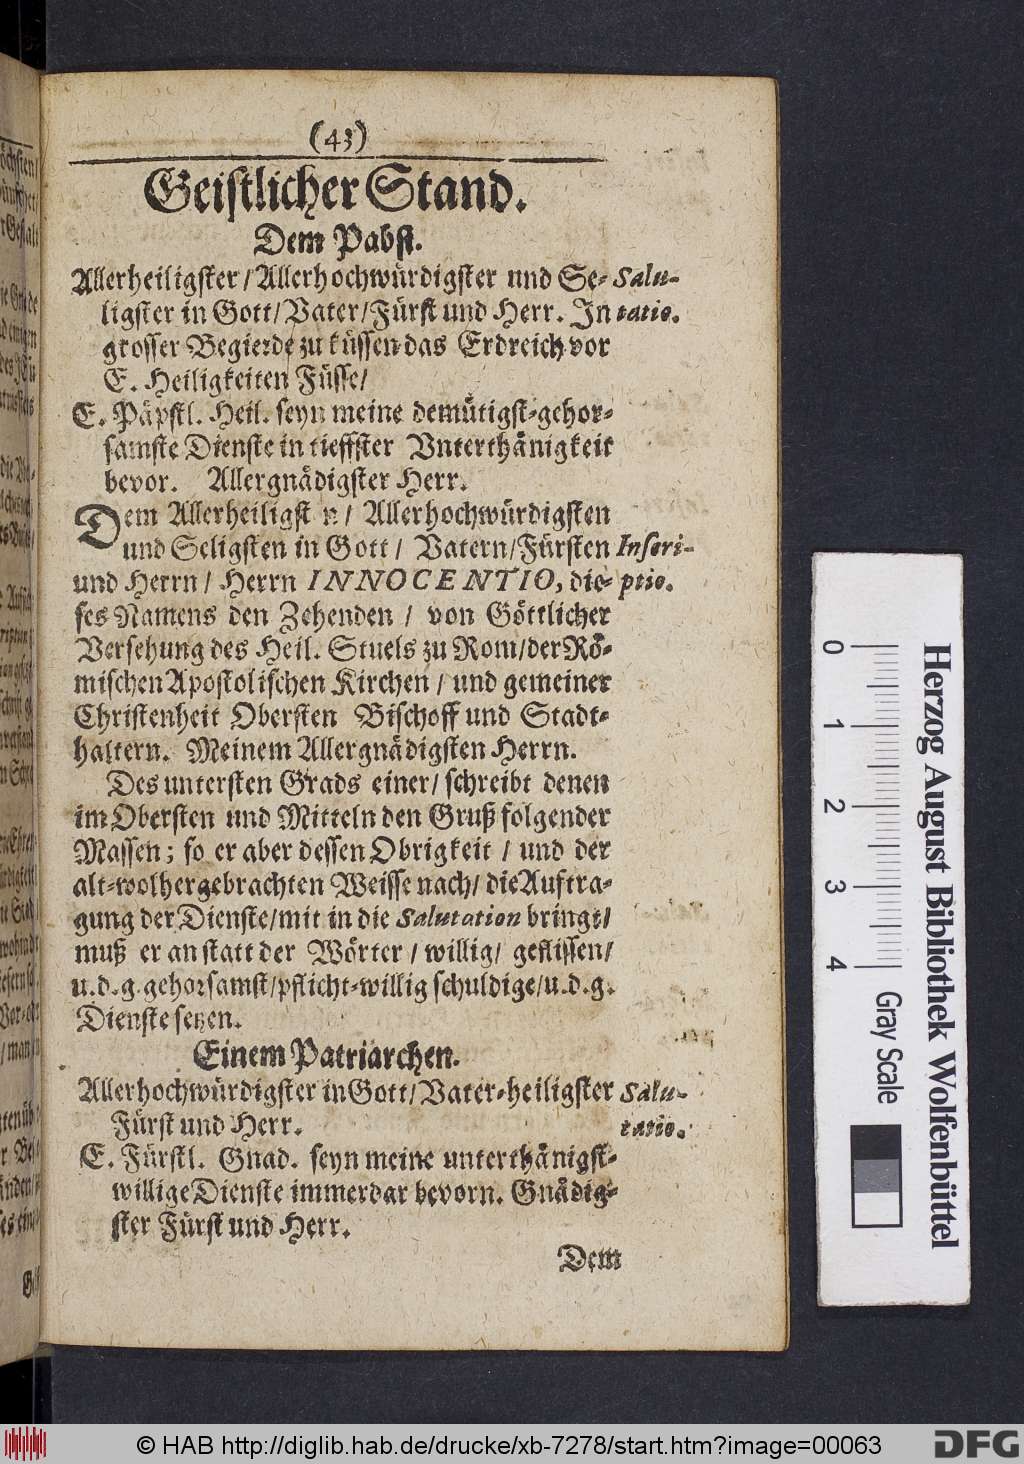 (43)
Geiſtlicher Stand.
Dem Pabſt.
Allerheiligſter / Allerhochwürdigſter und Se- Salu-
ligſter in Gott / Vater / Fürſt und Herr. In tatio.
groſſer Begierde zu küſſen das Erdreich vor
E. Heiligkeiten Füſſe /
E. Päpſtl. Heil. ſeyn meine demütigſt-gehor-
ſamſte Dienſte in tieffſter Vnterthänigkeit
bevor. Allergnädigſter Herr.
Dem Allerheiligſt n / Allerhochwürdigſten
und Seligſten in Gott / Vatern / Fürſten Inſcri-
und Herrn / Herrn INNOCENTIO, die- ptio.
ſes Namens den Zehenden / von Göttlicher
Verſehung des Heil. Stuels zu Rom / der Rö-
miſchen Apoſtoliſchen Kirchen / und gemeiner
Chriſtenheit Oberſten Biſchoff und Stadt-
haltern. Meinem Allergnädigſten Herrn.
Des unterſten Grads einer / ſchreibt denen
im Oberſten und Mitteln den Gruß folgender
Maſſen; ſo er aber deſſen Obrigkeit / und der
alt-wolhergebrachten Weiſſe nach / die Auftra-
gung der Dienſte / mit in die Salutation bringt /
muß er an ſtatt der Wörter / willig / gefliſſen /
u.d.g. gehorſamſt / pflicht-willig ſchuldige / u.d.g.
Dienſte ſetzen.
Einem Patriarchen.
Allerhochwürdigſter in Gott / Vater-heiligſter Salu-
Fürſt und Herr. tatio.
E. Fürſtl. Gnad. ſeyn meine unterthänigſt-
willige Dienſte immerdar bevorn. Gnädig-
ſter Fürſt und Herr.
Dem
0 1 2 3 4
Gray Scale
Herzog August Bibliothek Wolfenbüttel
© HAB http://diglib.hab.de/drucke/xb-7278/start.htm?image=00063
DFG